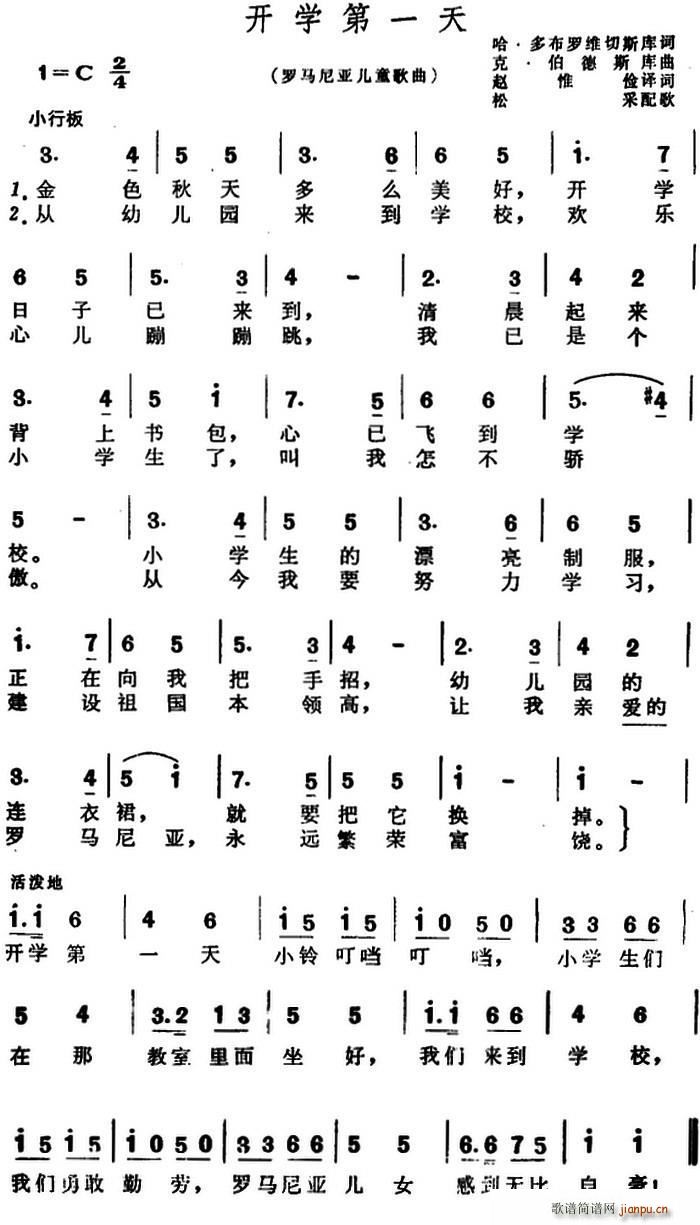 开学第一天
1=C 2/4
（罗马尼亚儿童歌曲）
哈·多布罗维切斯库词
克·伯德斯库曲
赵惟俭译词
松采配歌
小行板
3. 4 | 5 5 | 3. 6 | 6 5 | i. 7 |
1.金色秋天多么美好，开学
2.从幼儿园来到学校，欢乐
6 5 | 5. 3 | 4 - | 2. 3 | 4 2 |
日子已来到，清晨起来
心儿蹦蹦跳，我已是个
3. 4 | 5 i | 7. 5 | 6 6 | 5. #4 |
背上书包，心已飞到学
小学生了，叫我怎不骄
5 - | 3. 4 | 5 5 | 3. 6 | 6 5 |
校。小学生的漂亮制服，
傲。从今我要努力学习，
i. 7 | 6 5 | 5. 3 | 4 - | 2. 3 | 4 2 |
正在向我把手招，幼儿园的
建设祖国本领高，让我亲爱的
3. 4 | 5 i | 7. 5 | 5 5 | i - | i - |
连衣裙，就要把它换掉。
罗马尼亚，永远繁荣富饶。
活泼地
i.i 6 | 4 6 | i5 i5 | i0 50 | 33 66 |
开学第一天小铃叮当叮当，小学生们
5 4 | 3.2 13 | 5 5 | i.i 66 | 4 6 |
在那教室里面坐好，我们来到学校，
i5 i5 | i0 50 | 33 66 | 5 5 | 6.6 75 | i i ‖
我们勇敢勤劳，罗马尼亚儿女感到无比自豪！
歌谱简谱网
jianpu.cn